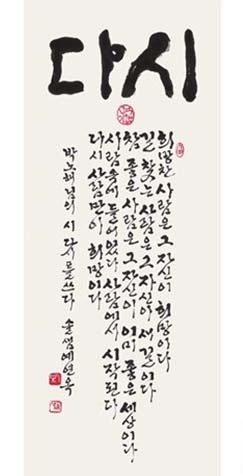 다시
희망찬 사람은 그 자신이 희망이다
길 찾는 사람은 그 자신이 새 길이다
참 좋은 사람은 그 자신이 이미 좋은 세상이다
사람 속에 들어 있다 사람에서 시작된다
다시 사람만이 희망이다
박노해님의 시 다시를 쓰다 솔샘 예연옥